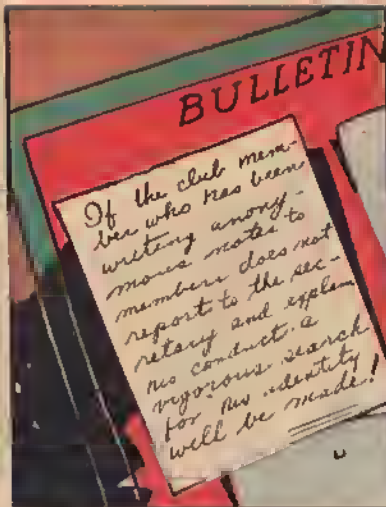 BULLETIN
If the club mem-
ber who has been
writing anony-
mous notes to
members does not
report to the sec-
retary and explain
his conduct a
vigorous search
for his identity
will be made!